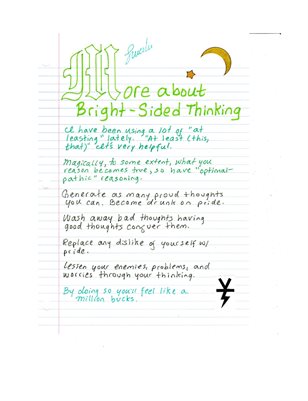 More about
Bright-Sided Thinking
I have been using a lot of "at
leasting" lately. "At least (this,
that)" It's very helpful.
Magically, to some extent, what you
reason becomes true, so have "optional-
pathic" reasoning.
Generate as many proud thoughts
you can. Become drunk on pride.
Wash away bad thoughts having
good thoughts conquer them.
Replace any dislike of yourself w/
pride.
Lessen your enemies, problems, and
worries through your thinking.
By doing so you'll feel like a
million bucks.